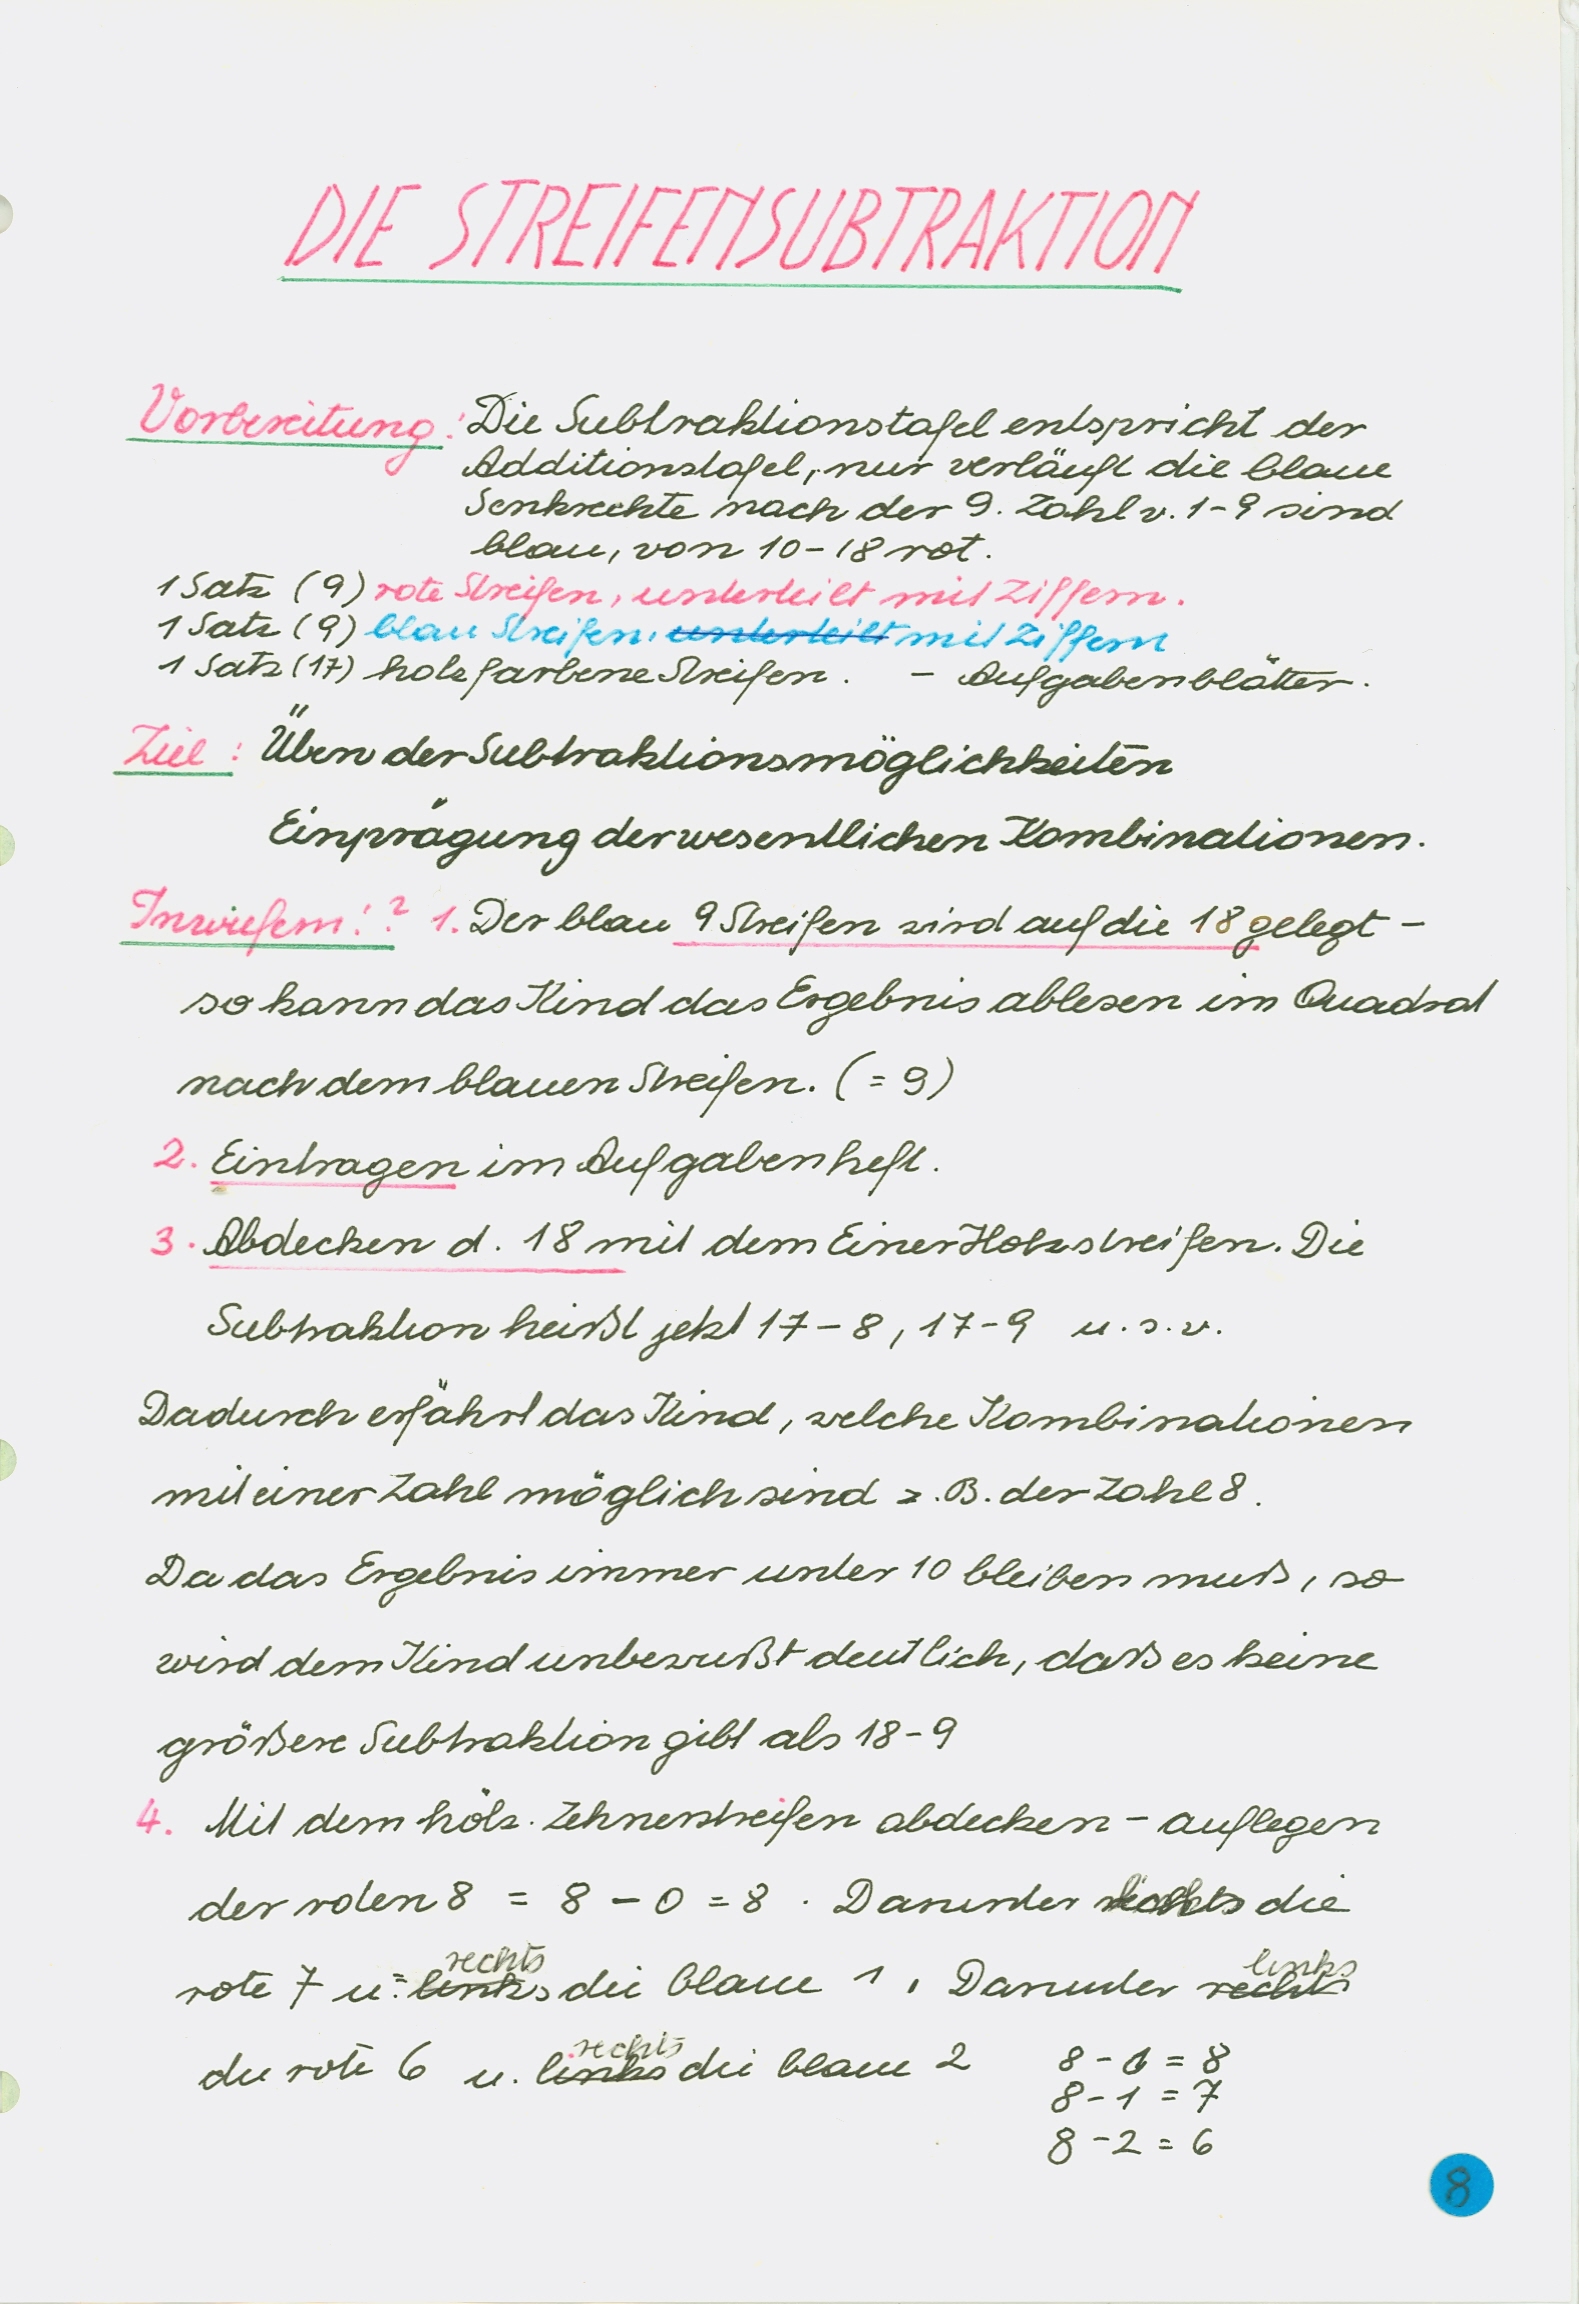 DIE STREIFENSUBTRAKTION
Vorbereitung: Die Subtraktionstafel entspricht der
Additionstafel, nur verläuft die blaue
Senkrechte nach der 9. Zahl v. 1-9 sind
blau, von 10-18 rot.
1 Satz (9) rote Streifen, unterteilt mit Ziffern.
1 Satz (9) blau Streifen, unterteilt mit Ziffern
1 Satz (17) holzfarbene Streifen. - Aufgabenblätter.
Ziel: Üben der Subtraktionsmöglichkeiten
Einprägung der wesentlichen Kombinationen.
Inwiefern!? 1. Der blau 9 Streifen wird auf die 18 gelegt -
so kann das Kind das Ergebnis ablesen im Quadrat
nach dem blauen Streifen. (= 9)
2. Eintragen im Aufgabenheft.
3. Abdecken d. 18 mit dem Einer Holzstreifen. Die
Subtraktion heißt jetzt 17-8, 17-9 u.s.v.
Dadurch erfährt das Kind, welche Kombinationen
mit einer Zahl möglich sind z.B. der Zahl 8.
Da das Ergebnis immer unter 10 bleiben muß, so
wird dem Kind unbewußt deutlich, daß es keine
größere Subtraktion gibt als 18-9
4. Mit dem hölz. Zehnerstreifen abdecken - auflegen
der roten 8 = 8 - 0 = 8. Darunter die
rechts links
rote 7 u. links die blaue 1, Darunter rechts
rechts
die rote 6 u. links die blaue 2 8 - 0 = 8
8 - 1 = 7
8 - 2 = 6
8